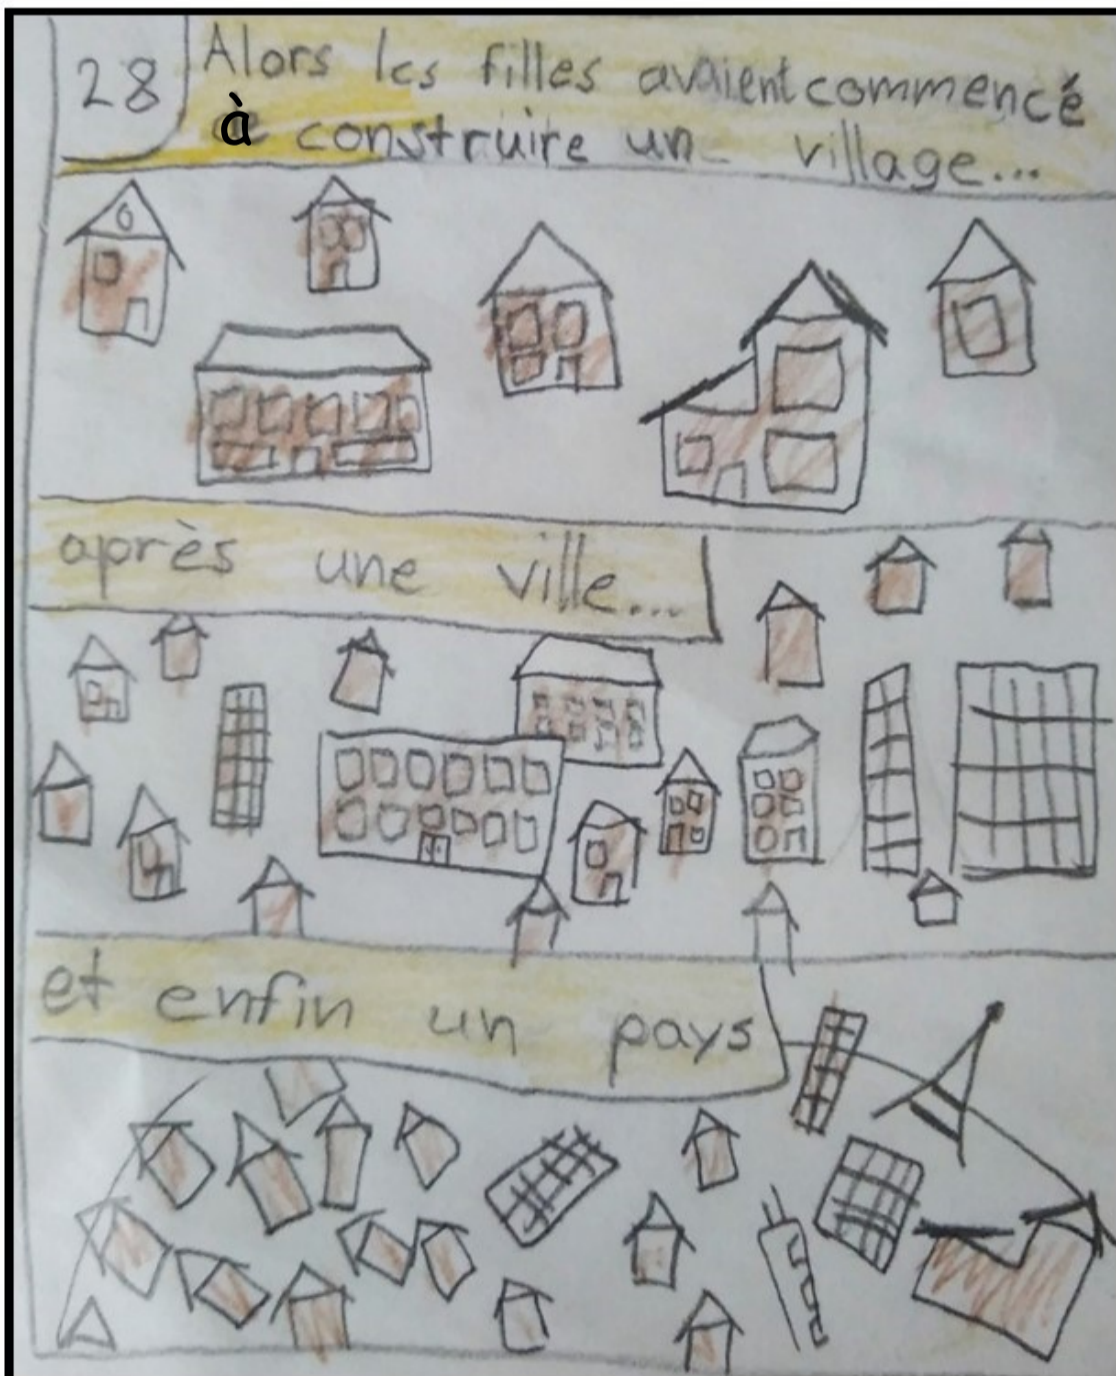 28
Alors les filles avaient commencé
à construire un village...
après une ville...
et enfin un pays